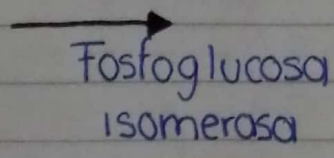 Fosfoglucosa
isomerasa